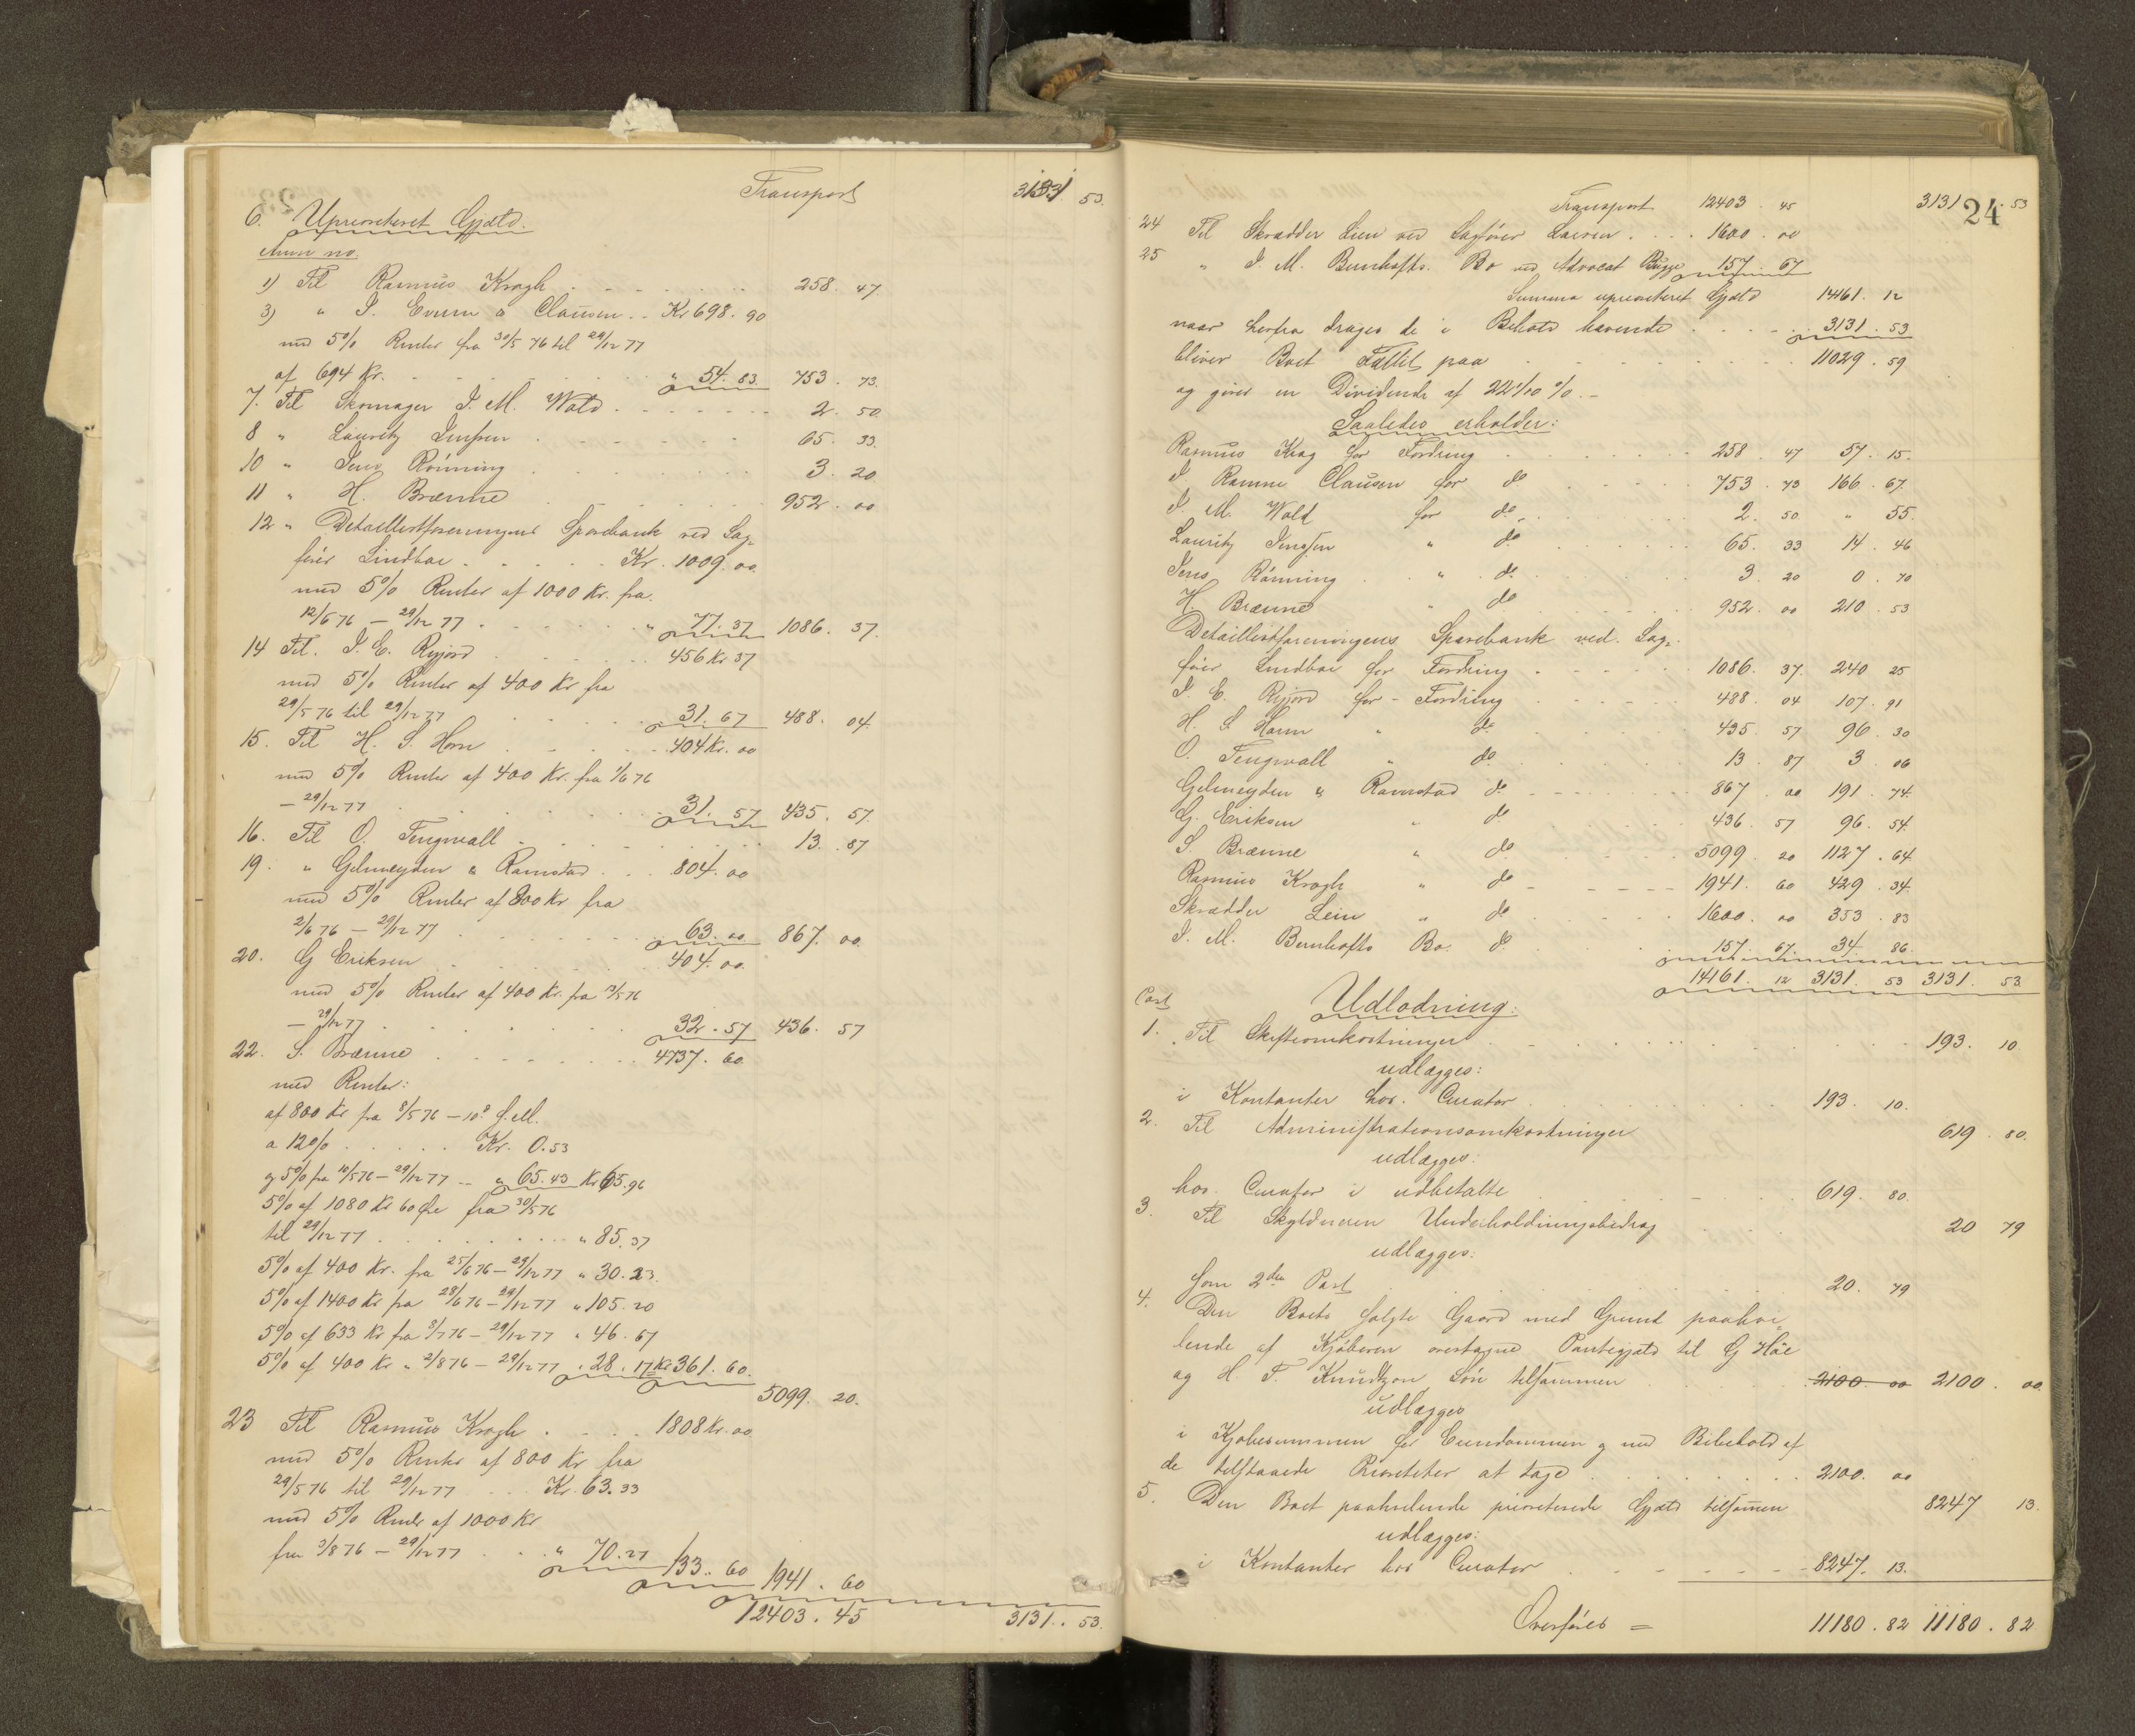 Transport 3131 53.
6. Uprioriteret Gjæld.
Anm no.
1) Til Rasmus Krogh 258. 47.
3) " & Clausen Kr 698. 90
med 5% Renter fra 30/5 76 til 29/12 77
af 694 Kr. " 54. 83. 753. 73.
7. Til Skomager J. M. Wold 2. 50
8 " Lauritz Jenssen 65. 33.
10 " Jens Rönning 3. 20
11 " H. Brænne 952. 00
12 " Detaillistforeningens Sparebank ved Sag-
fører Lindboe Kr. 1009. 00.
med 5% Renter af 1000 Kr. fra
12/6 76 – 29/12 77 " 77. 37 1086. 37.
14 Til. J. E. Rejjord 456 Kr 37
med 5% Renter af 400 Kr fra
29/5 76 til 29/12 77 31. 67 488. 04.
15. Til H. S. Horn 404 Kr. 00
med 5% Renter af 400 Kr. fra 1/6 76
– 29/12 77 31. 57 435. 57.
16. Til O. Tengwall 13. 87
19. " Gelmeyden & Ramstad 804. 00
med 5% Renter af 800 Kr fra
2/6 76 – 29/12 77 63. 00 867. 00.
20. G Eriksen 404. 00.
med 5% Renter af 400 Kr. fra 13/5 76
– 29/12 77 32. 57 436. 57
22. S. Brænne 4737. 60.
med Renter:
af 800 Kr fra 8/5 76 – 10de s. M.
a 12% Kr. 0.53
og 5% fra 10/5 76 – 29/12 77 " 65. 43 Kr 65.96
5% af 1080 Kr 60 Øre fra 30/5 76
til 29/12 77 " 85. 37
5% af 400 Kr. fra 25/6 76 – 29/12 77 " 30. 23.
5% af 1400 Kr fra 28/6 76 – 29/12 77 " 105. 20
5% af 633 Kr fra 8/7 76 – 29/12 77 " 46. 67
5% af 400 Kr " 2/8 76 – 29/12 77 " 28. 17 Kr 361. 60.
5099. 20.
23 Til Rasmus Krogh 1808 Kr. 00
med 5% Renter af 800 Kr fra
29/5 76 til 29/12 77 Kr. 63. 33
med 5% Renter af 1000 Kr
fra 3/8 76 – 29/12 77 " 70. 27 133. 60 1941. 60
12403. 45 3131. 53.
24
Transport 12403. 45 3131. 53
24 Til Skrædder Lein ved Sagfører Larsen 1600. 00
25 " J. M. Bernhofts Bo ved Advocat Bugge 157. 67
Summa uprioriteret Gjæld 14161. 12
naar herfra drages de i Behold havende 3131. 53
bliver Boet Fallit paa 11029. 59
og giver en Dividende af 22 1/10 %. –
Saaledes erholder:
Rasmus Krag for Fordring 258. 47 57. 15.
Clausen for do 753. 73 166. 67.
J. M. Wold for do 2. 50 " 55.
Lauritz Jenssen " do 65. 33 14. 46
Jens Rönning " do 3. 20 0. 70
H. Brænne " do 952. 00 210. 53
Detaillistforeningens Sparebank ved Sag-
fører Lindboe for Fordring 1086. 37. 240 25
J. E. Rejjord for – Fordring 488. 04 107. 91
H. S. Horn " do 435. 57 96. 30
O. Tengwall " do 13. 87 3. 06
Gelmeyden & Ramstad do 867. 00 191. 74.
G. Eriksen " do 436. 57 96. 54.
S. Brænne " do 5099. 20 1127. 64
Rasmus Krogh " do 1941. 60 429. 34.
Skrædder Lein " do 1600. 00 353. 83
J. M. Bernhofts Bo. do 157. 67. 34. 86.
14161. 12 3131. 53 3131. 53
Post Udlodning:
1. Til Skifteomkostninger 193. 10
udlægges:
i Kontanter hos Curator 193. 10.
2. Til Administrationsomkostninger 619. 80.
udlægges:
hos Curator i udbetalte 619. 80.
3. Til Skyldneren Underholdningsbidrag 20 79
udlægges:
Som 2den Post 20. 79
4. Den Boets solgte Gaard med Grund paahvi-
lende af Kjøberen overtagne Pantegjæld til G Höe
og H. F. Knudtzon Søn tilsammen 2100. 00 2100. 00
udlægges
i Kjøbesummen for Eiendommen og med Bibehold af
de tilstaaede Prioriteter at tage 2100. 00
5. Den Boet paahvilende prioriterede Gjæld tilsammen 8247 13.
udlægges:
i Kontanter hos Curator 8247. 13.
Overføres = 11180. 82 11180. 82